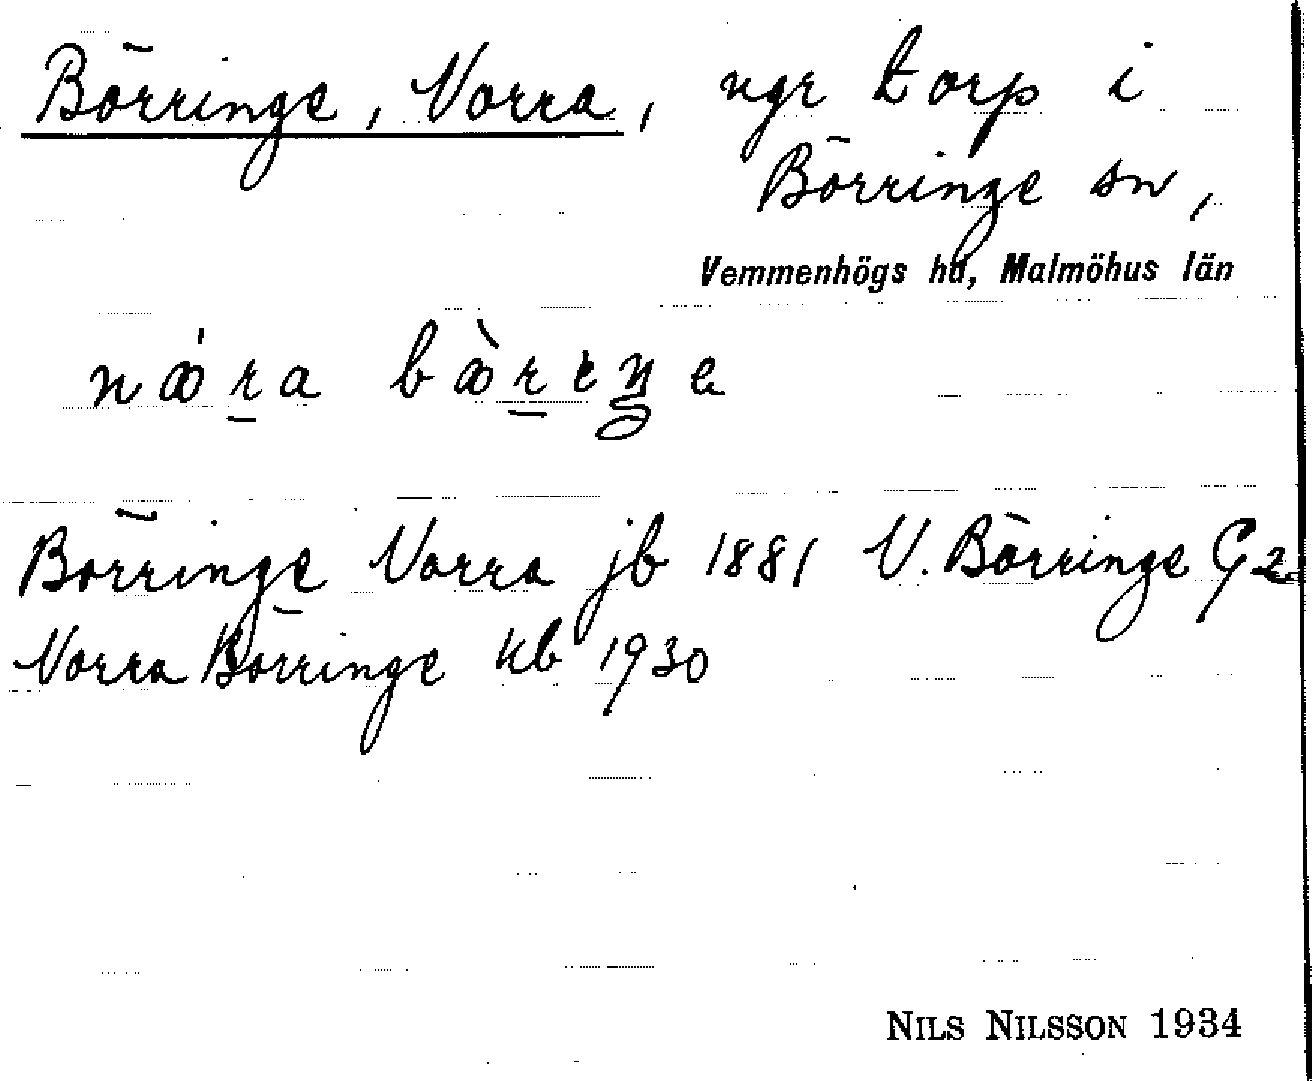 Börringe, Norra, ngr torp i
Börringe sn,
Vemmenhögs hd, Malmöhus län
Börringe Norra jb 1881 N. Börringe G2
Norra Börringe kb 1930
NILS NILSSON 1934